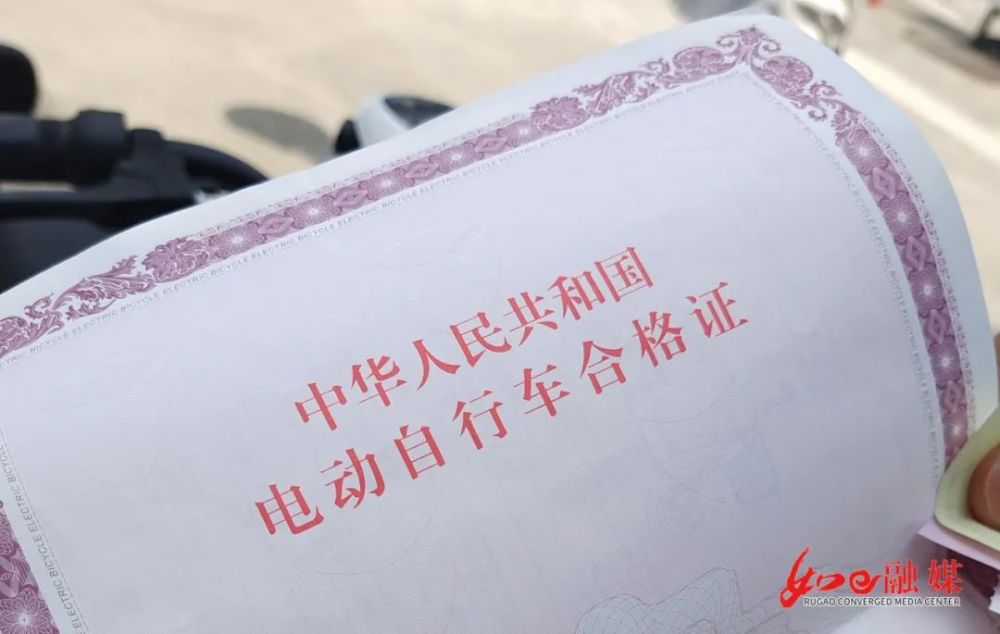 ELECTRIC BICYCLE ELECTRIC BICYCLE ELECTRIC BICYCLE ELECTRIC BICYCLE ELECTRIC BICYCLE
中华人民共和国
电动自行车合格证
如皋融媒
RUGAO CONVERGED MEDIA CENTER